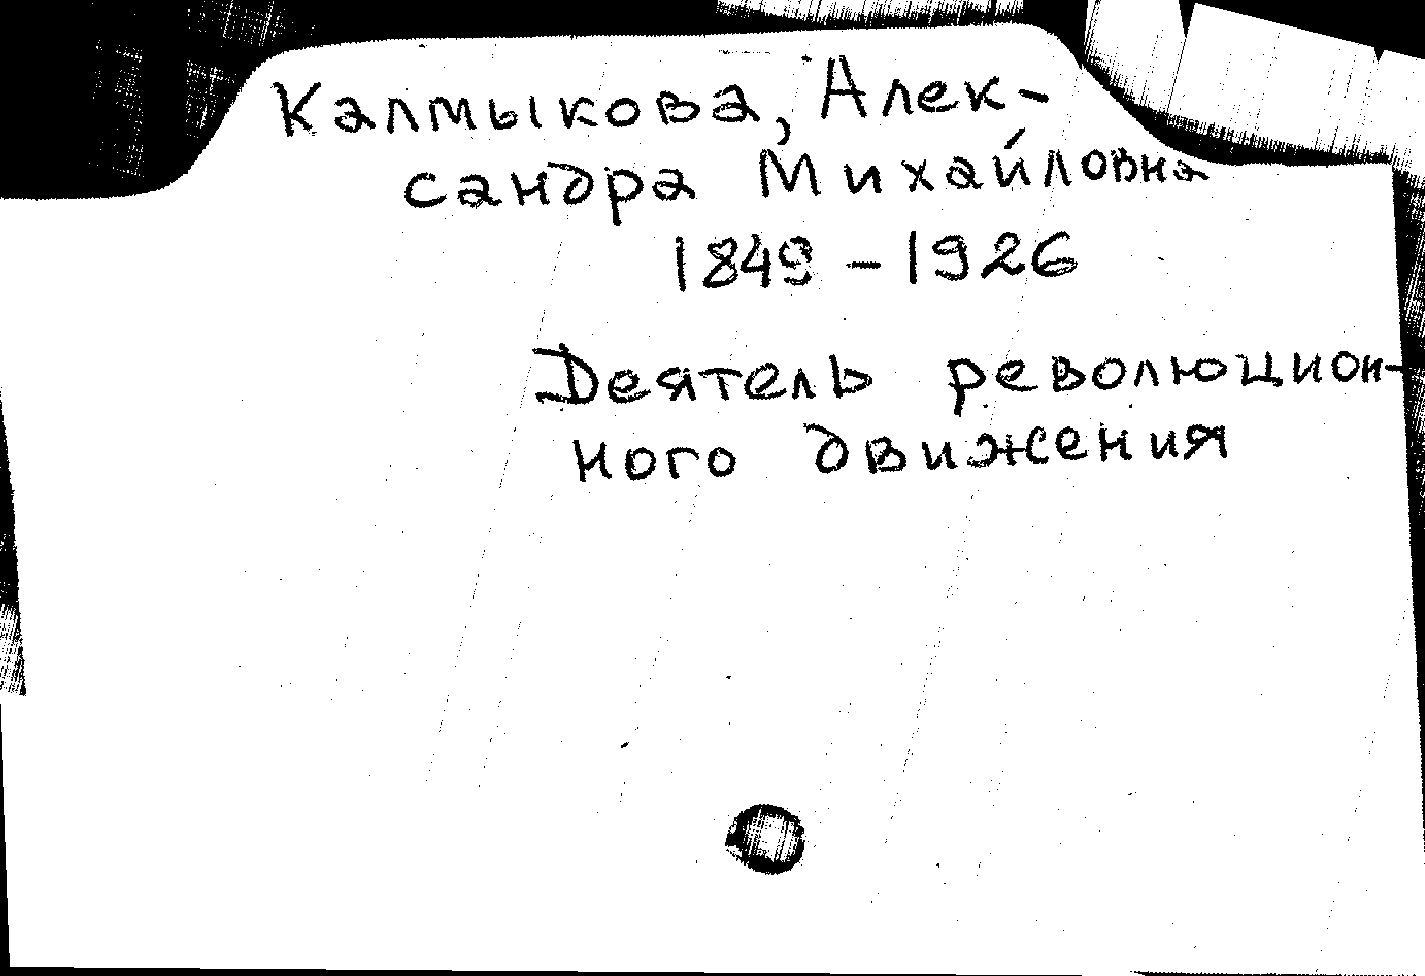 Калмыкова, Алек-
сандра Михайловна
1849 – 1926
Деятель революцион-
ного движения